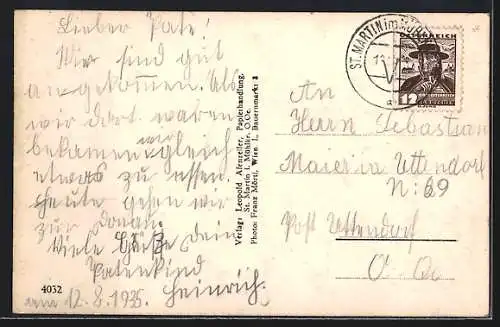 Lieber Pate!
Wir sind gut
angekommen. Als
wir dort waren
bekamen wir gleich
etwas zu essen.
Heute gehen wir
zur Donau.
Viele Grüße Dein
Patenkind
Heinrich.
am 12.8.1935.
4032
Verlag: Leopold Atzmüller, Papierhandlung,
St. Martin i. Mühlkr. O.Oe.
Photo: Franz Mörtl, Wien I., Bauernmarkt 3
ST. MARTIN im MÜHLKR
ÖSTERREICH
12
An
Herrn Sebastian
Maier in Uttendorf
N: 69
Post Uttendorf
O. Oe.